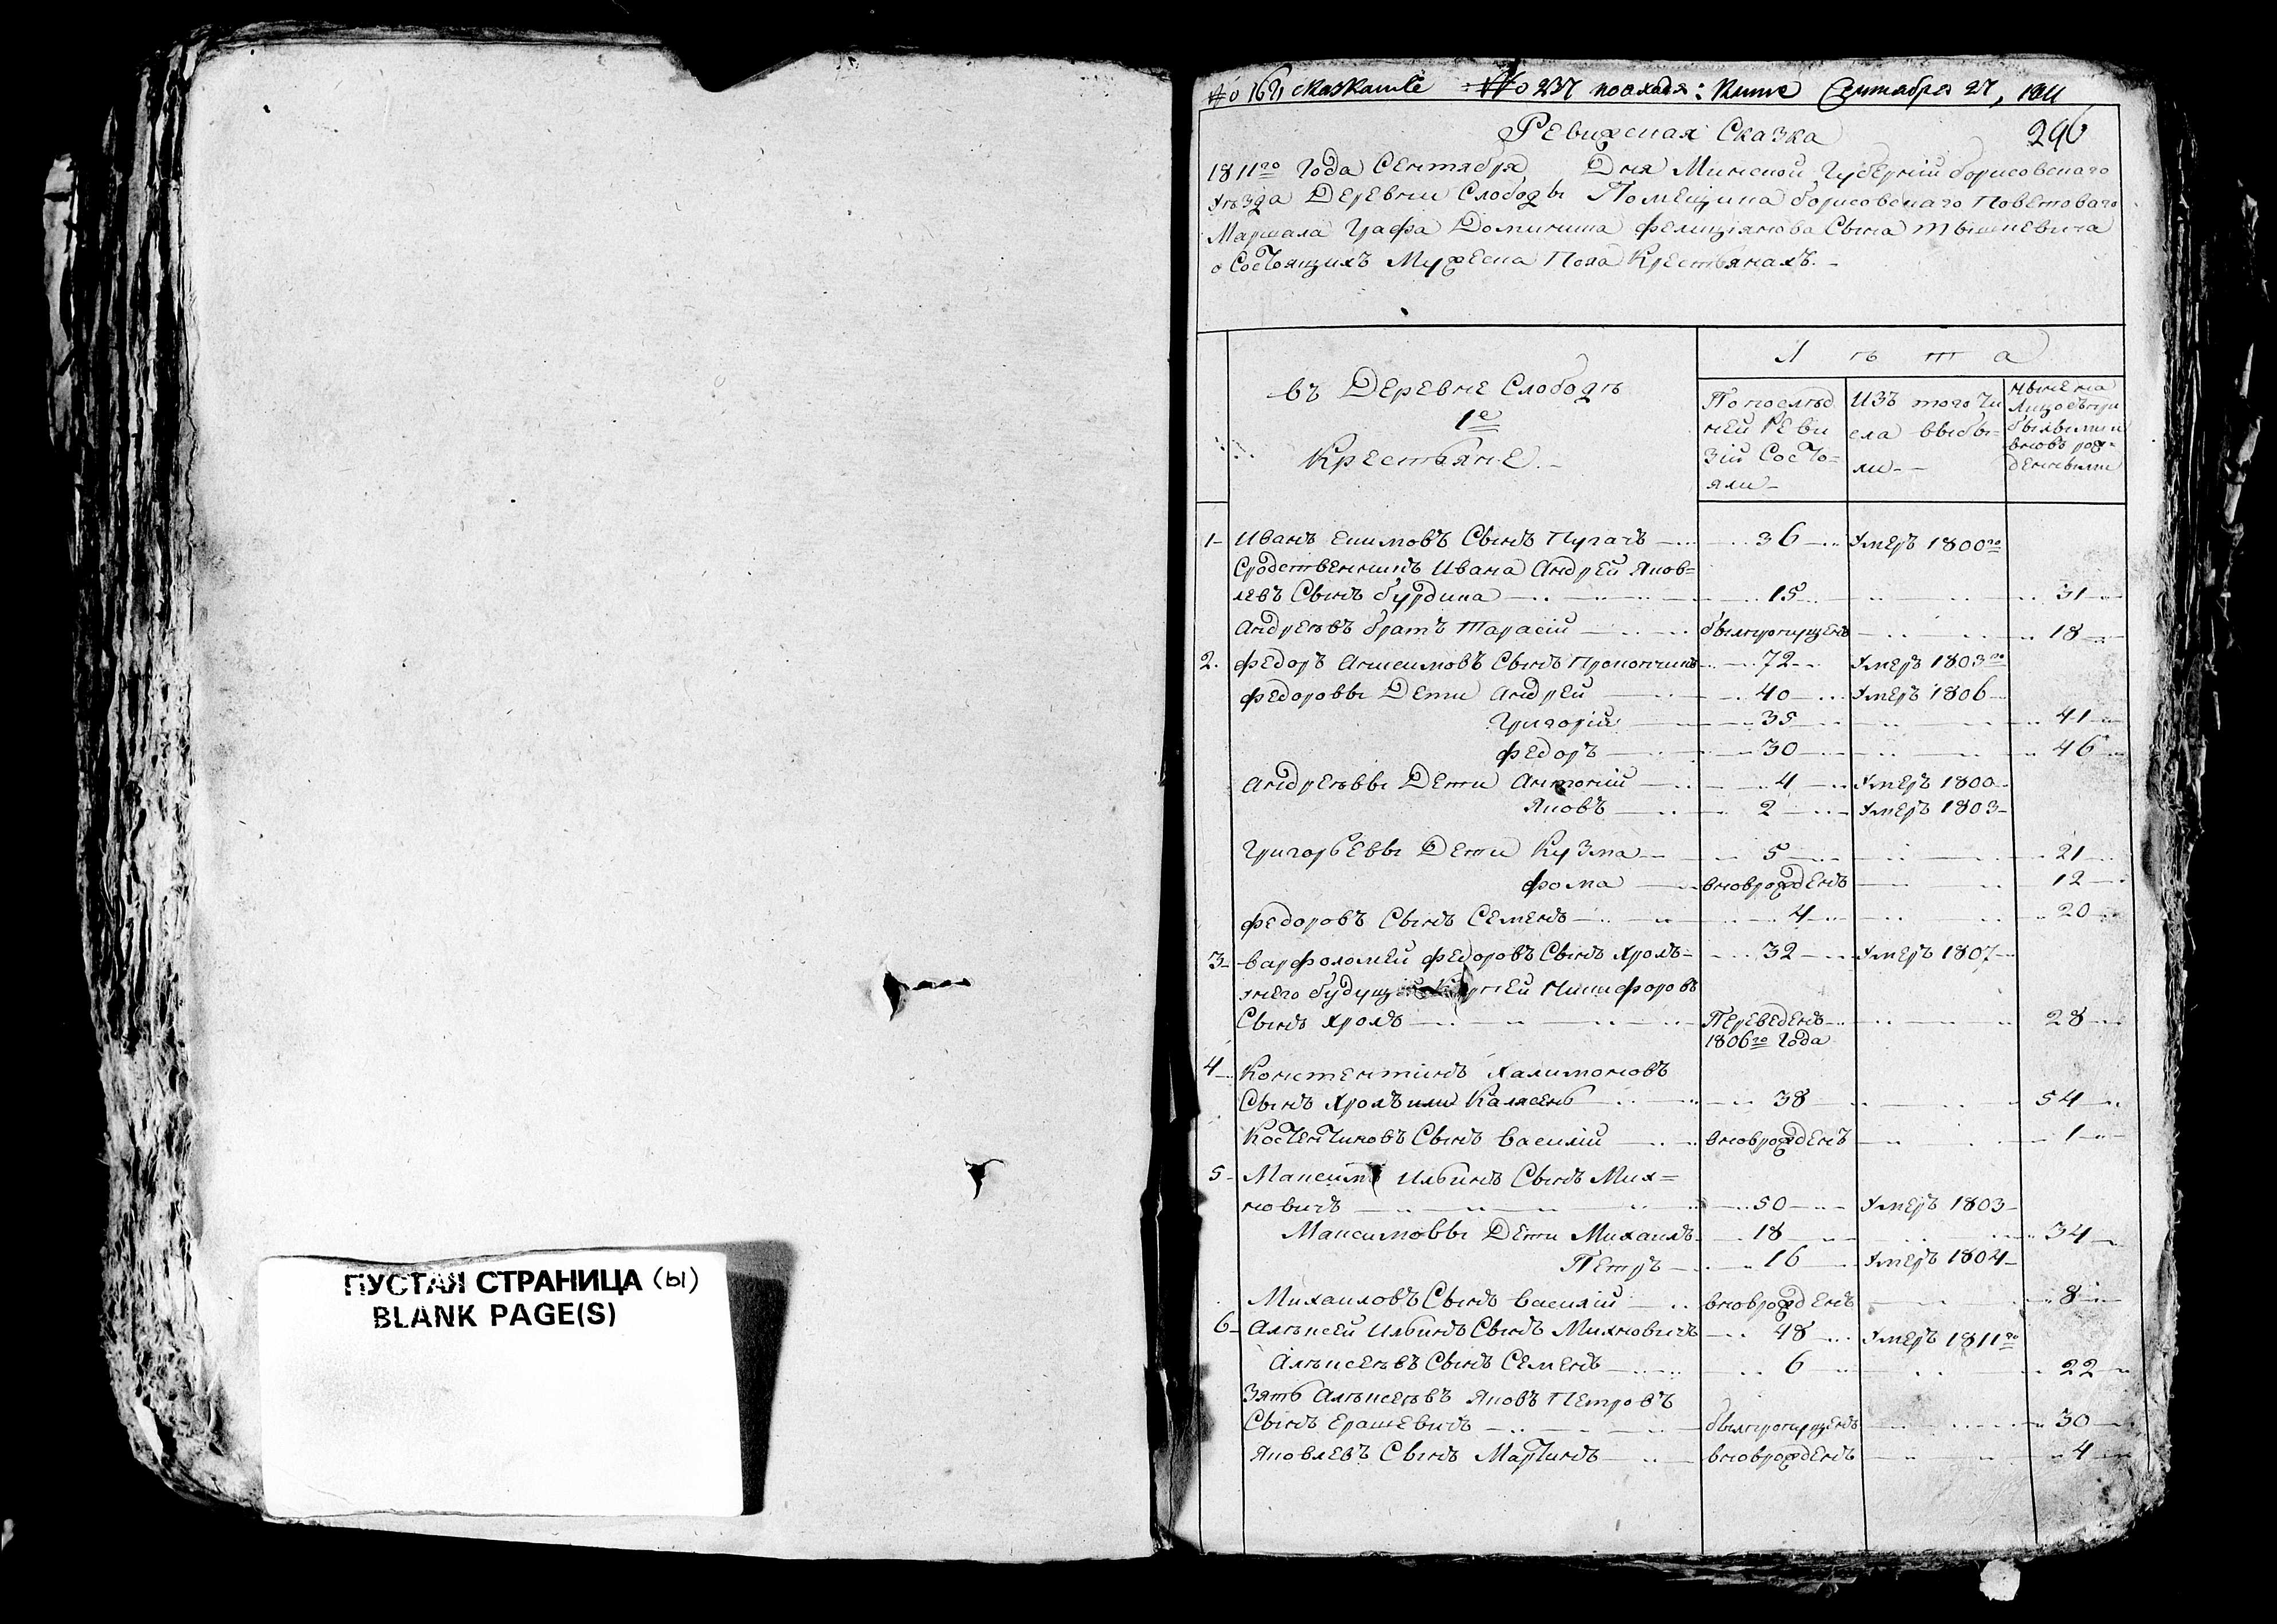 ПУСТАЯ СТРАНИЦА (ы)
BLANK PAGE(S)
№ 237 Сентября 27, 1811
Ревижская Сказка 296
1811го Года Сентября Дня Минской Губерніи борисовскаго
уѣзда Деревни Слободы Помещика борисовскаго Поветоваго
Маршала Графа Доминика Фелиціянова Сына Тышкевича
о Состоящихъ Мужеска Пола Крестьянахъ.-
Лѣта
въ Деревне Слободѣ
1е
Крестьяне.-
По послѣд
ней Реви
зій Состо=
яли-
Изъ того чи
сла выбы=
ли--
Ныне на
Лицо съ при
былыми и
вновь рож=
денными
1- Иванъ Екимовъ Сынъ Пугачъ 36 Умеръ 1800го
Сродственникъ Ивана Андрей Яков=
левъ Сынъ бурдика 15 31
Андреѣвъ братъ Тарасій былъ пропущенъ 18
2. Федоръ Анисимовъ Сынъ 72 Умеръ 1803го
Федоровы Дети Андрей 40 Умеръ 1806
Григорій 35 41
Федоръ 30 46
Андреѣвы Дети Антоній 4 Умеръ 1800
Яковъ 2 Умеръ 1803
Григорьевы Дети Кузма 5 21
Фома вновърожденъ 12
Федоровъ Сынъ Семенъ 4 20
3- Варфоломей Федоровъ Сынъ Хролъ= 32 Умеръ 1807
у него будущей Никифоровъ
Сынъ Хролъ Переведенъ 28
1806го Года
4 Констентинъ Халимоновъ
Сынъ Хролъ или 38 54
Костентиновъ Сынъ Василій вновърожденъ 1
5- Максимъ Ильинъ Сынъ Мих=
новичъ 50 Умеръ 1803
Максимовы Дети Михаилъ 18 34
Петръ 16 Умеръ 1804
Михаиловъ Сынъ Василій вновърожденъ 8
6- Алѣксей Ильинъ Сынъ Михновичъ 48 Умеръ 1811го
Алѣксеѣвъ Сынъ Семенъ 6 22
Зять Алѣксеѣвъ Яковъ Петровъ
Сынъ Ерашевичъ былъ пропущенъ 30
Яковлевъ Сынъ Мартинъ вновърожденъ 4